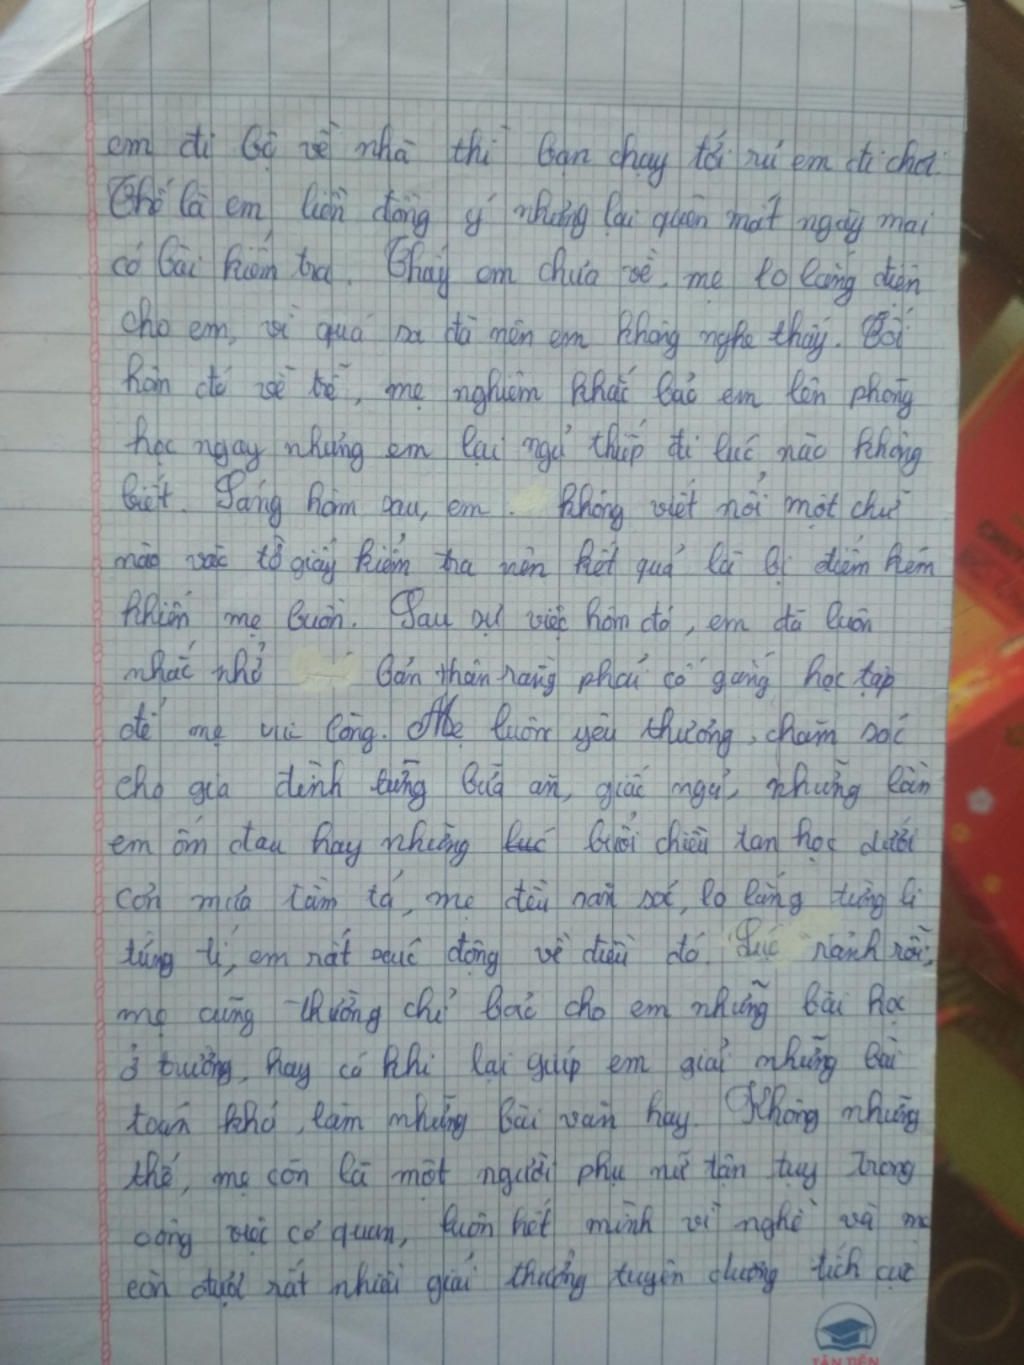 em đi bộ về nhà thì bạn chạy tới rủ em đi chơi.
Thế là em liền đồng ý nhưng lại quên mất ngày mai
có bài kiểm tra. Thấy em chưa về, mẹ lo lắng điện
cho em, vì quá xa đà nên em không nghe thấy. Tối
hôm đó về trễ, mẹ nghiêm khắc bảo em lên phòng
học ngay nhưng em lại ngủ thiếp đi lúc nào không
biết. Sáng hôm sau, em không viết nổi một chữ
nào vào tờ giấy kiểm tra nên kết quả là bị điểm kém
khiến mẹ buồn. Sau sự việc hôm đó, em đã luôn
nhắc nhở bản thân rằng phải cố gắng học tập
để mẹ vui lòng. Mẹ luôn yêu thương, chăm sóc
cho gia đình từng bữa ăn, giấc ngủ, những lần
em ốm đau hay những lúc buổi chiều tan học dưới
cơn mưa tầm tã, mẹ đều săn sóc, lo lắng từng li
từng tí, em rất xúc động về điều đó. Lúc rảnh rỗi,
mẹ cũng thường chỉ bảo cho em những bài học
ở trường, hay có khi lại giúp em giải những bài
toán khó, làm những bài văn hay. Không những
thế, mẹ còn là một người phụ nữ tận tụy trong
công việc cơ quan, luôn hết mình vì nghề và mẹ
còn được rất nhiều giải thưởng tuyên dương tích cực
TÂN TIẾN